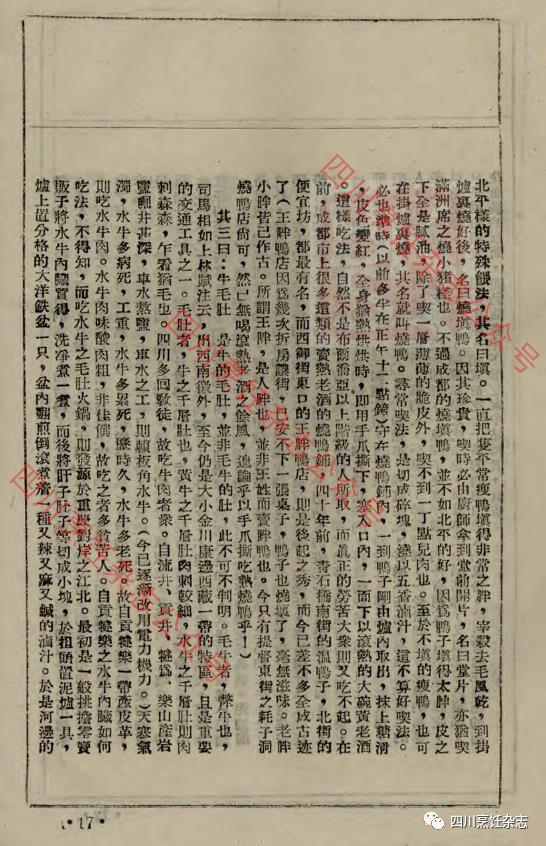 北平樣的特殊餵法,其名曰填。一直把隻平常瘦鴨填得非常之胖,宰殺去毛風乾,到掛
爐裏燒好後,名曰燒填鴨。因其珍貴,喫時必由廚師拿到堂前開片,名曰堂片,亦猶喫
滿洲席之燒小猪樣也。不過成都的燒填鴨,並不如北平的好,因爲鴨子填得太胖,皮之
下全是膩油,除了喫一層薄薄的脆皮外,喫不到一丁點兒肉也。至於不填的瘦鴨,也可
在掛爐裏燒,其名就叫燒鴨。尋常喫法,是切成碎塊,澆以五香滷汁,這不算好喫法。
必也準時(以前多半在正午十二點鐘)在燒鴨鋪內,一到鴨子剛由爐內取出,抹上糖清
,皮色變紅,全身猶熱烘烘時,即用手爪撕下,塞入口內,一面下以滾熱的大碗黃老酒
。這樣吃法,自然不是布爾喬亞以上階級的人所取,而眞正的勞苦大衆則又吃不起。在
前,成都市上很多這類的賣熱老酒的燒鴨鋪,四十年前,青石橋南街的溫鴨子,北街的
便宜坊,都最有名,而西御街東口的王胖鴨店,則是後起之秀,而今已差不多全成古迹
了(王胖鴨店因爲幾次折房讓街,已安不下一張桌子,鴨子也燒填了,毫無滋味。老胖
小胖皆已作古。所謂王胖,是人胖也,並非王姓而賣胖鴨也。今只有提督東街之耗子洞
燒鴨店尚可,然已無喝滾熱老酒之餘風,遑論乎以手爪撕吃熱燒鴨乎!)
其三曰:牛毛肚 是牛的毛肚,並非毛牛的肚,此不可不判明。毛牛者,犛牛也,
司馬相如上林賦注云,出西南徼外,至今仍是大小金川康邊西藏一帶的特區,且是重要
的交通工具之一。毛肚者,牛之千層肚也,黃牛之千層肚肉刺較細,水牛之千層肚則肉
刺森森,乍看猶毛也。四川多回教徒,故吃牛肉者衆。自流井、貢井、犍爲、樂山產岩
鹽,鹽井甚深,車水熬鹽,車水之工,則賴板角水牛。(今已逐漸改用電力機力。)天寒氣
濁,水牛多病死,工重,水牛多累死,歷時久,水牛多老死。故自貢犍樂一帶產皮革,
則吃水牛肉。水牛肉味酸肉粗,非佳饌,故吃之者多貧苦人。自貢犍樂之水牛內臟如何
吃法,不得知,而吃水牛之毛肚火鍋,則發源於重慶對岸之江北。最初是一般挑擔零賣
販子將水牛內臟買得,洗凈煮一煮,而後將肝子肚子等切成小塊,於担頭置泥爐一具,
爐上置分格的大洋鉄盆一只,盆內翻煎倒滾煮着一種又辣又麻又鹹的滷汁。於是河邊的
·17·
四川烹饪杂志公众号
四川烹饪杂志公众号
四川烹饪杂志